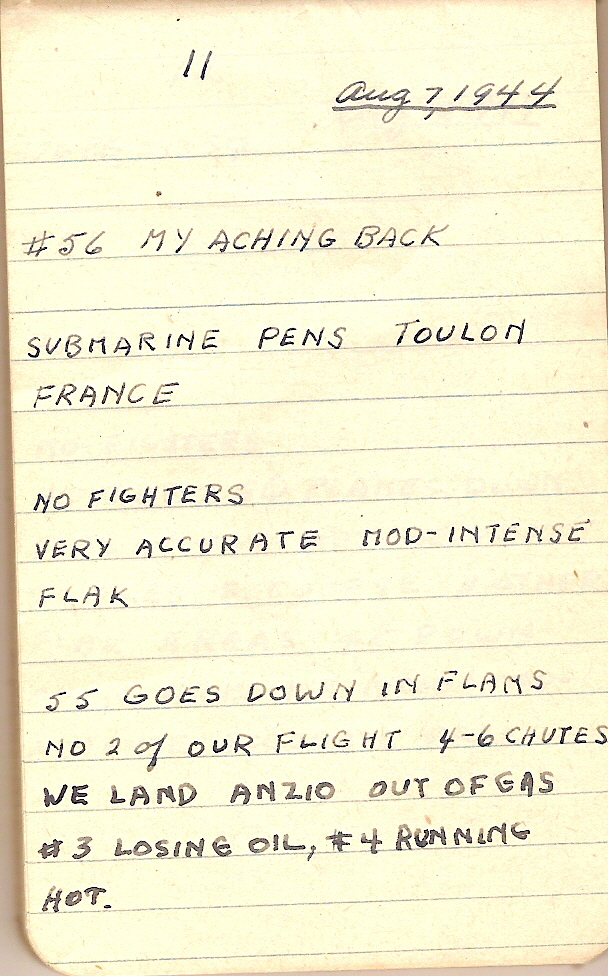 11
Aug 7, 1944
#56 MY ACHING BACK
SUBMARINE PENS TOULON
FRANCE
NO FIGHTERS
VERY ACCURATE MOD-INTENSE
FLAK
55 GOES DOWN IN FLAMS
NO 2 of OUR FLIGHT 4-6 CHUTES
WE LAND ANZIO OUT OF GAS
#3 LOSING OIL, #4 RUNNING
HOT.